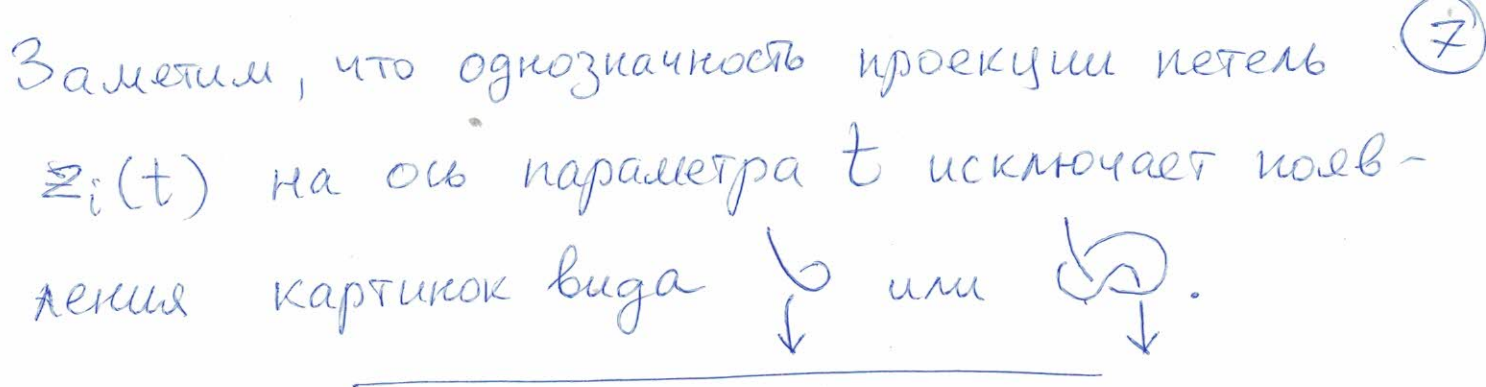 Заметим, что однозначность проекции петель ⑦
z_i(t) на ось параметра t исключает появ-
ления картинок вида или .